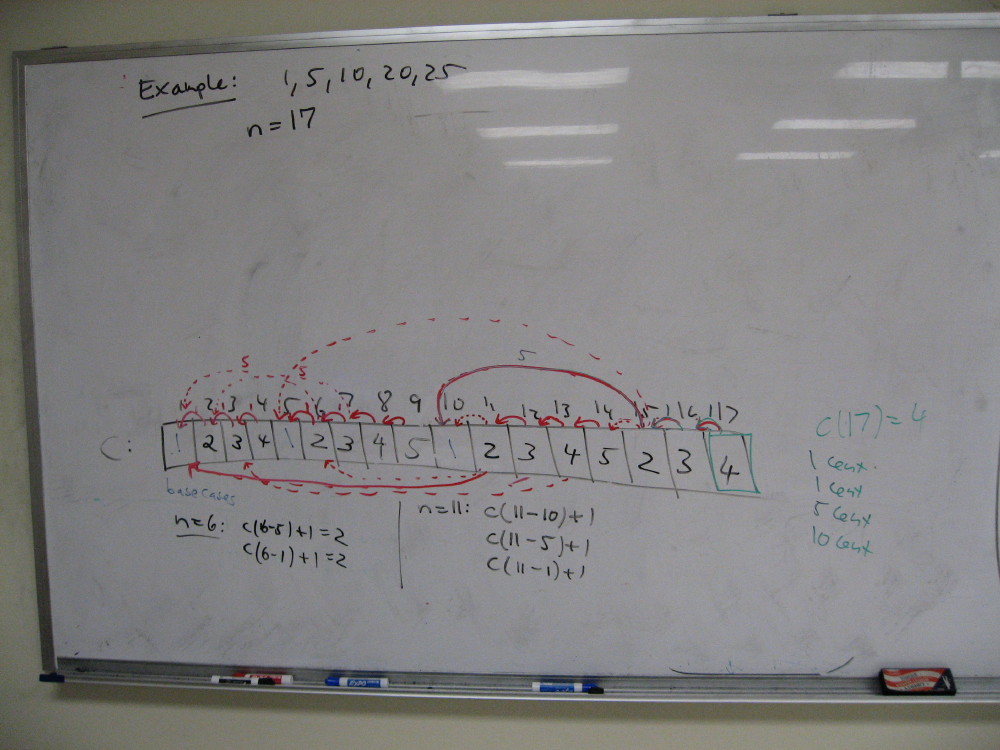 Example: 1, 5, 10, 20, 25
n=17
5 5 5
1 2 3 4 5 6 7 8 9 10 11 12 13 14 15 16 17
C: 1 2 3 4 1 2 3 4 5 1 2 3 4 5 2 3 4
base cases
n=6: c(6-5)+1=2
c(6-1)+1=2
n=11: c(11-10)+1
c(11-5)+1
c(11-1)+1
c(17)=4
1 cent.
1 cent
5 cent
10 cent